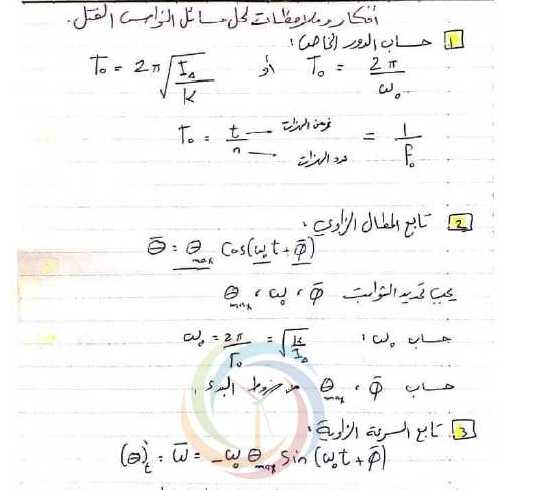 أفكار وملاحظات لحل مسائل النواس القتل.
1 حساب الدور الخاص:
T₀ = 2π √(I_Δ / k) أو T₀ = 2π / ω₀
T₀ = t / n = 1 / f₀
زمن الهزات
عدد الهزات
2 تابع المطال الزاوي:
θ̄ = θ_max cos(ω₀t + φ̄)
يجب تحديد الثوابت φ̄ ، ω₀ ، θ_max
حساب ω₀: ω₀ = 2π / T₀ = √(k / I_Δ)
حساب φ̄ ، θ_max من شروط البدء.
3 تابع السرعة الزاوية:
(θ̄)'_t = ω̄ = -ω₀ θ_max sin(ω₀t + φ̄)